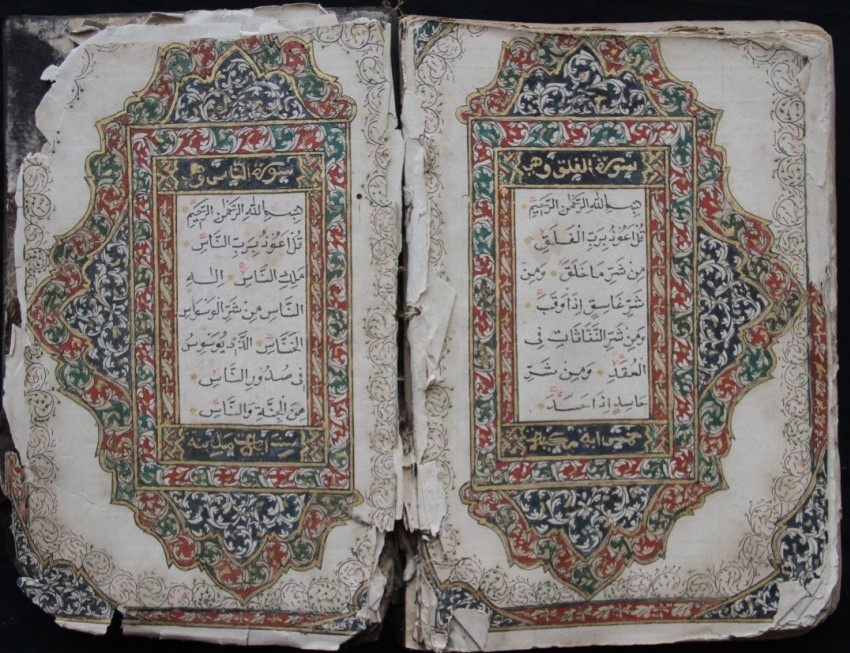 سورة الفلق وهي
بِسْمِ اللهِ الرَّحْمٰنِ الرَّحِيْمِ
قُلْ اَعُوْذُ بِرَبِّ الْفَلَقِ
مِنْ شَرِّ مَا خَلَقَ وَمِنْ
شَرِّ غَاسِقٍ اِذَا وَقَبَ
وَمِنْ شَرِّ النَّفَّاثَاتِ فِى
الْعُقَدِ وَمِنْ شَرِّ
حَاسِدٍ اِذَا حَسَدَ
خمس اية مكية
سورة الناس وهي
بِسْمِ اللهِ الرَّحْمٰنِ الرَّحِيْمِ
قُلْ اَعُوْذُ بِرَبِّ النَّاسِ
مَلِكِ النَّاسِ اِلٰهِ
النَّاسِ مِنْ شَرِّ الْوَسْوَاسِ
الْخَنَّاسِ الَّذِى يُوَسْوِسُ
فِى صُدُوْرِ النَّاسِ
مِنَ الْجِنَّةِ وَالنَّاسِ